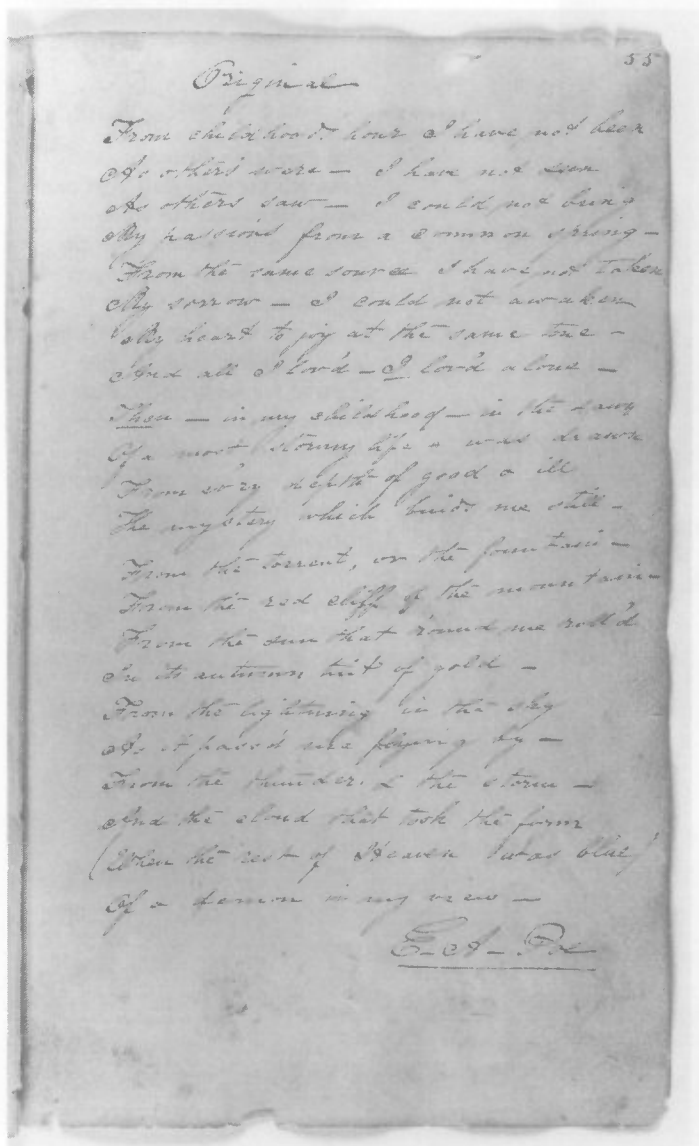 55
Original
From childhood's hour I have not been
As others were — I have not seen
As others saw — I could not bring
My passions from a common spring —
From the same source I have not taken
My sorrow — I could not awaken
My heart to joy at the same tone —
And all I lov'd — I lov'd alone —
Then — in my childhood — in the dawn
Of a most stormy life — was drawn
From ev'ry depth of good & ill
The mystery which binds me still —
From the torrent, or the fountain —
From the red cliff of the mountain —
From the sun that 'round me roll'd
In its autumn tint of gold —
From the lightning in the sky
As it pass'd me flying by —
From the thunder, & the storm —
And the cloud that took the form
(When the rest of Heaven was blue)
Of a demon in my view —
E. A. Poe